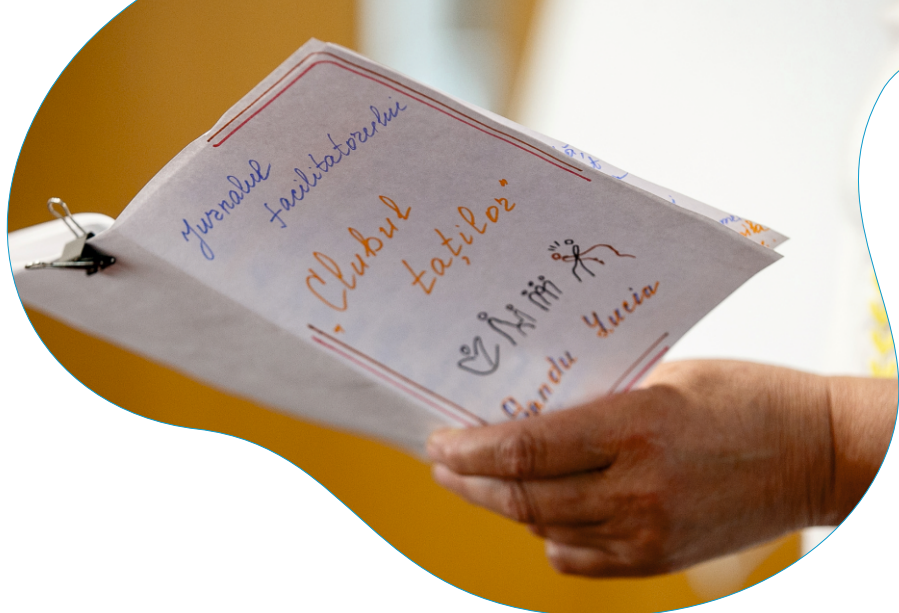 Jurnalul
facilitatorului
„Clubul
taților”
Sandu Lucia